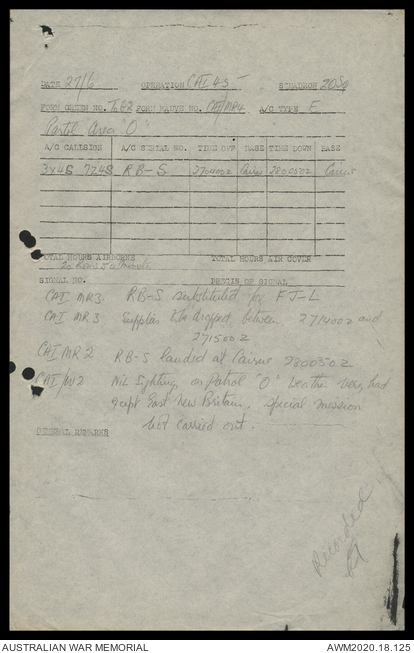 DATE 27/6 OPERATION CAI 43 SQUADRON 20 Sq
FORM GREEN NO. FORM MAUVE NO. CAI/MR4 A/C TYPE F
Patrol Area "O"
A/C CALLSIGN A/C SERIAL NO. TIME OFF BASE TIME DOWN BASE
3X4S 7Z4S RB-S 270400Z Cairns 280050Z Cairns
TOTAL HOURS AIRBORNE TOTAL HOURS AIR COVER
20 hours 50 minutes
SIGNAL NO. PRECIS OF SIGNAL
CAI MR3 RB-S substituted for FJ-L
CAI MR3 Supplies to be dropped between 271400Z and
271500Z
CAI MR2 RB-S landed at Cairns 280050Z
CAI/W2 Nil sighting on Patrol "O" Weather very bad
except East New Britain. Special mission
not carried out.
GENERAL REMARKS
Recorded
AUSTRALIAN WAR MEMORIAL AWM2020.18.125